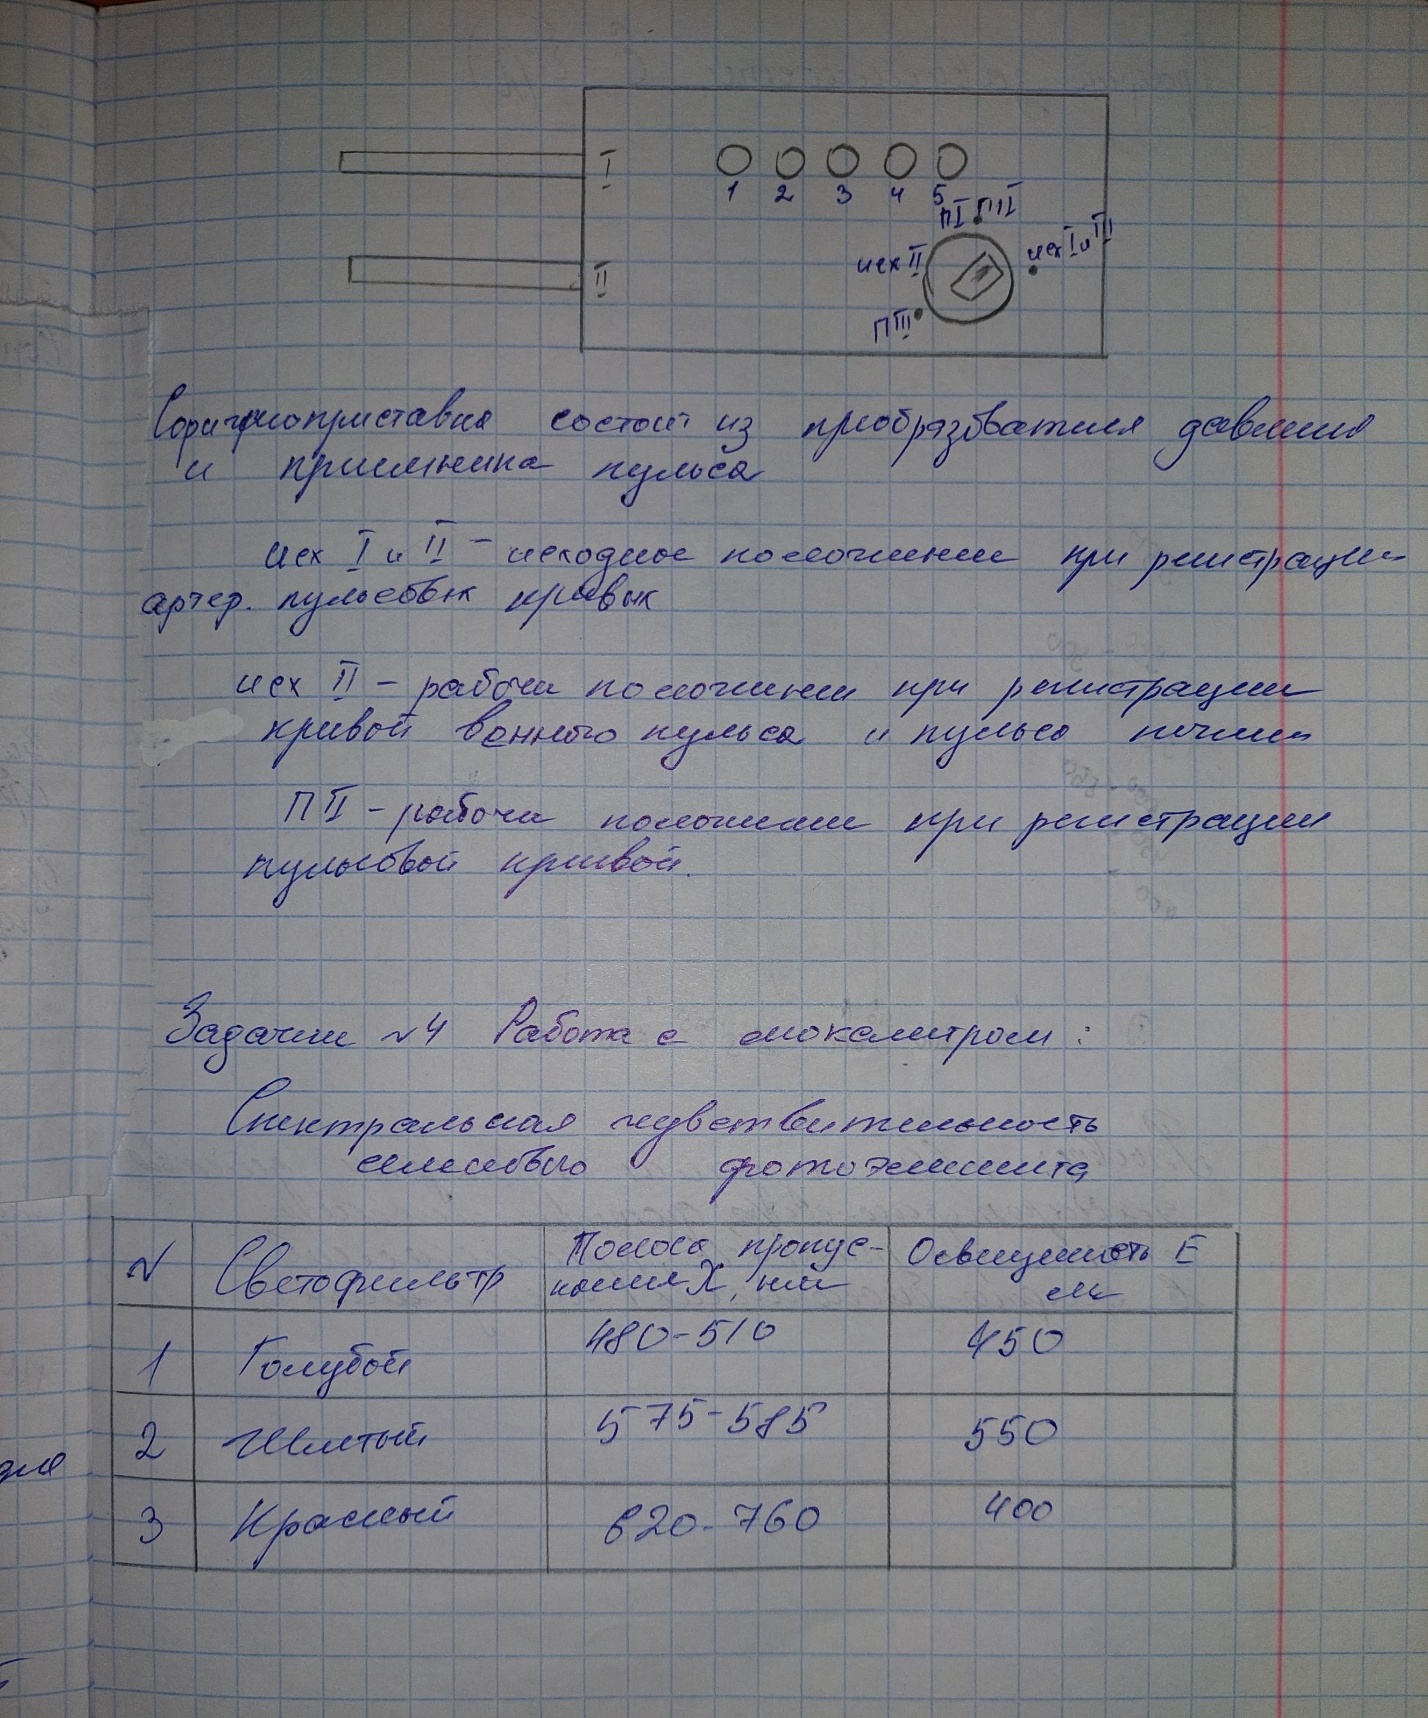 I
1 2 3 4 5
ПI ПII
исх II исх I и III
II
ПIII
состоит из преобразователя давления
и приемника пульса
исх I и II - исходное положение при регистрации
артер. пульсовых кривых
исх II - рабочее положение при регистрации
кривой венного пульса и пульса печени
ПII - рабочее положение при регистрации
пульсовой кривой.
Задание №4 Работа с люксметром:
Спектральная чувствительность
селенового фотоэлемента
N Светофильтр Полоса пропус- Освещенность E
кания λ, нм лк
1 Голубой 480-510 450
2 Желтый 575-585 550
3 Красный 620-760 400